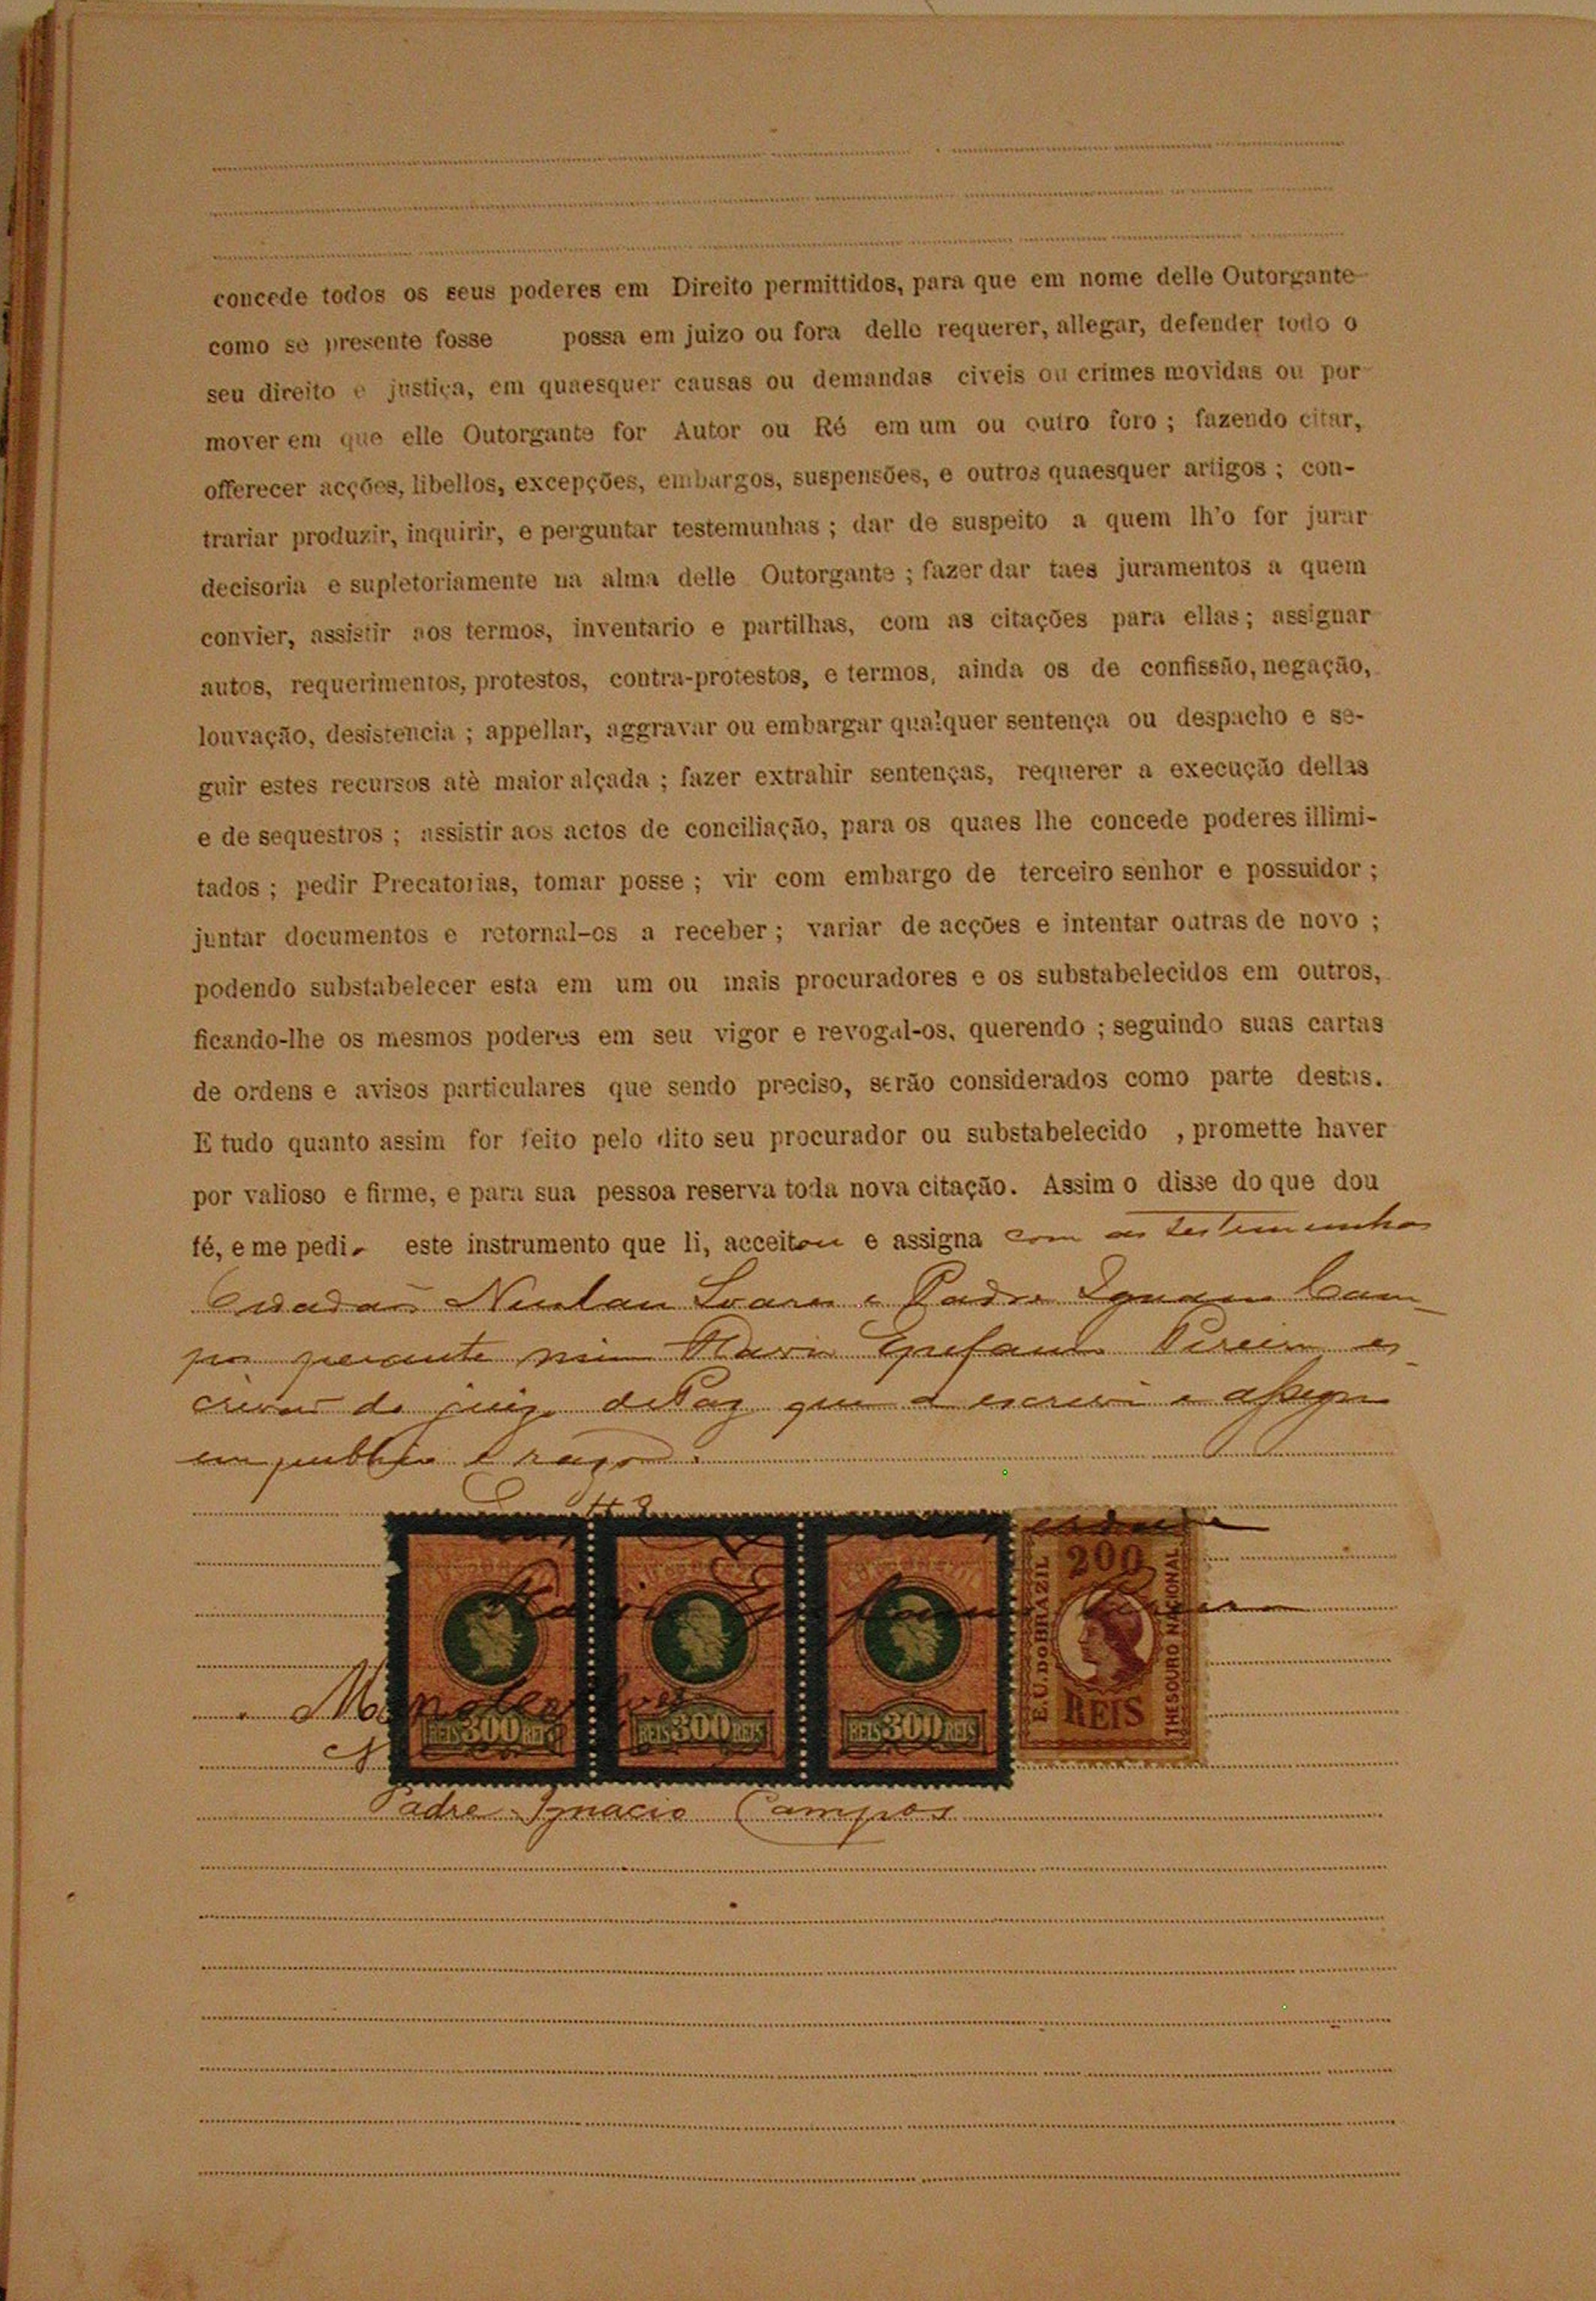 concede todos os seus poderes em Direito permittidos, para que em nome delle Outorgante
como se presente fosse possa em juizo ou fora delle requerer, allegar, defender todo o
seu direito e justiça, em quaesquer causas ou demandas civeis ou crimes movidas ou por
mover em que elle Outorgante for Autor ou Ré em um ou outro foro ; fazendo citar,
offerecer acções, libellos, excepções, embargos, suspensões, e outros quaesquer artigos ; con-
trariar produzir, inquirir, e perguntar testemunhas ; dar de suspeito a quem lh'o for jurar
decisoria e supletoriamente na alma delle Outorgante ; fazer dar taes juramentos a quem
convier, assistir aos termos, inventario e partilhas, com as citações para ellas ; assignar
autos, requerimentos, protestos, contra-protestos, e termos, ainda os de confissão, negação,
louvação, desistencia ; appellar, aggravar ou embargar qualquer sentença ou despacho e se-
guir estes recursos atè maior alçada ; fazer extrahir sentenças, requerer a execução dellas
e de sequestros ; assistir aos actos de conciliação, para os quaes lhe concede poderes illimi-
tados ; pedir Precatorias, tomar posse ; vir com embargo de terceiro senhor e possuidor ;
juntar documentos e retornal-os a receber ; variar de acções e intentar outras de novo ;
podendo substabelecer esta em um ou mais procuradores e os substabelecidos em outros,
ficando-lhe os mesmos poderes em seu vigor e revogal-os, querendo ; seguindo suas cartas
de ordens e avisos particulares que sendo preciso, serão considerados como parte destas.
E tudo quanto assim for feito pelo dito seu procurador ou substabelecido , promette haver
por valioso e firme, e para sua pessoa reserva toda nova citação. Assim o disse do que dou
fé, e me pedi este instrumento que li, acceitou e assigna com as testemunhas
Soares e Padre Ignacio Cam
pos perante mim Pereira es
crivão do juizo de Paz que a escrevi e assigno
em publico e raso.
200
E. U. DO BRAZIL
THESOURO NACIONAL
REIS
REIS 300 REIS
REIS 300 REIS
REIS 300 REIS
Padre Ignacio Campos